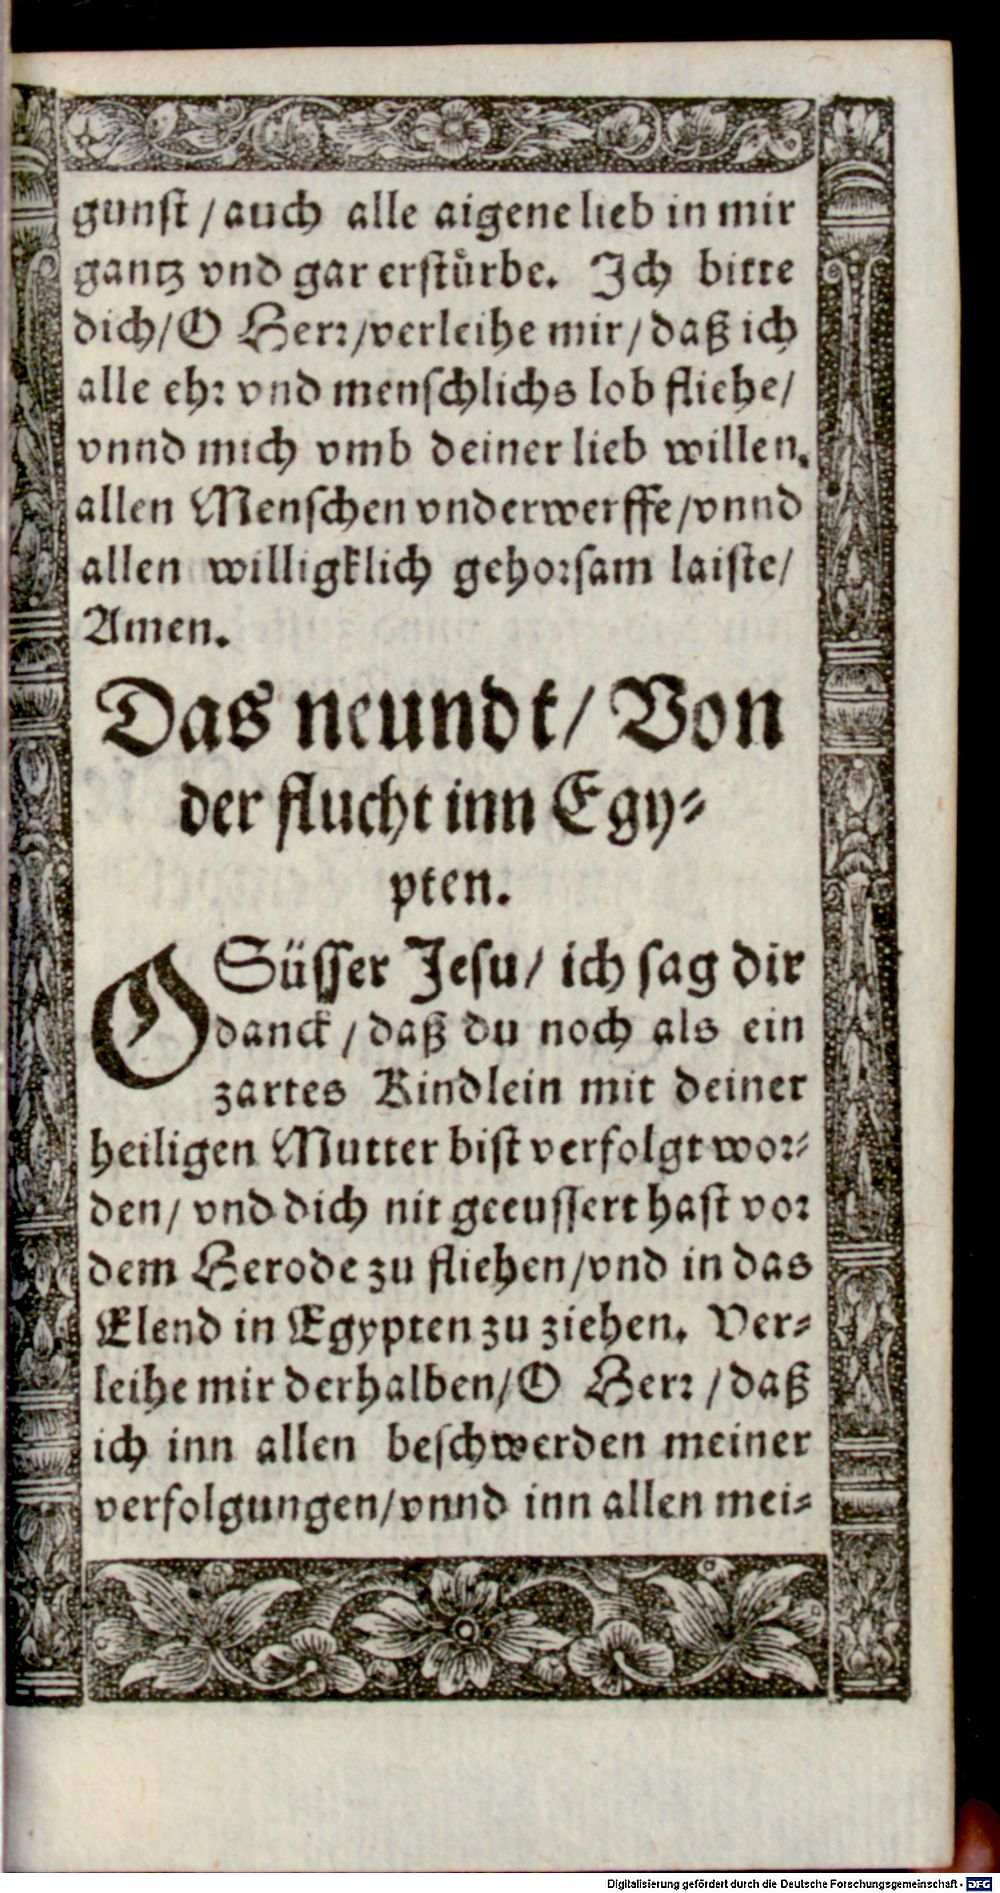 gunst / auch alle aigene lieb in mir
gantz vnd gar erstürbe. Ich bitte
dich/ O Herr/ verleihe mir/ daß ich
alle ehr vnd menschlichs lob fliehe/
vnnd mich vmb deiner lieb willen.
allen Menschen vnderwerffe/ vnnd
allen willigklich gehorsam laiste/
Amen.
Das neundt/ Von
der flucht inn Egy-
pten.
O Süsser Jesu/ ich sag dir
danck / daß du noch als ein
zartes Kindlein mit deiner
heiligen Mutter bist verfolgt wor-
den/ vnd dich nit geeussert hast vor
dem Herode zu fliehen/ vnd in das
Elend in Egypten zu ziehen. Ver-
leihe mir derhalben/ O Herr / daß
ich inn allen beschwerden meiner
verfolgungen/ vnnd inn allen mei-
Digitalisierung gefördert durch die Deutsche Forschungsgemeinschaft - DFG